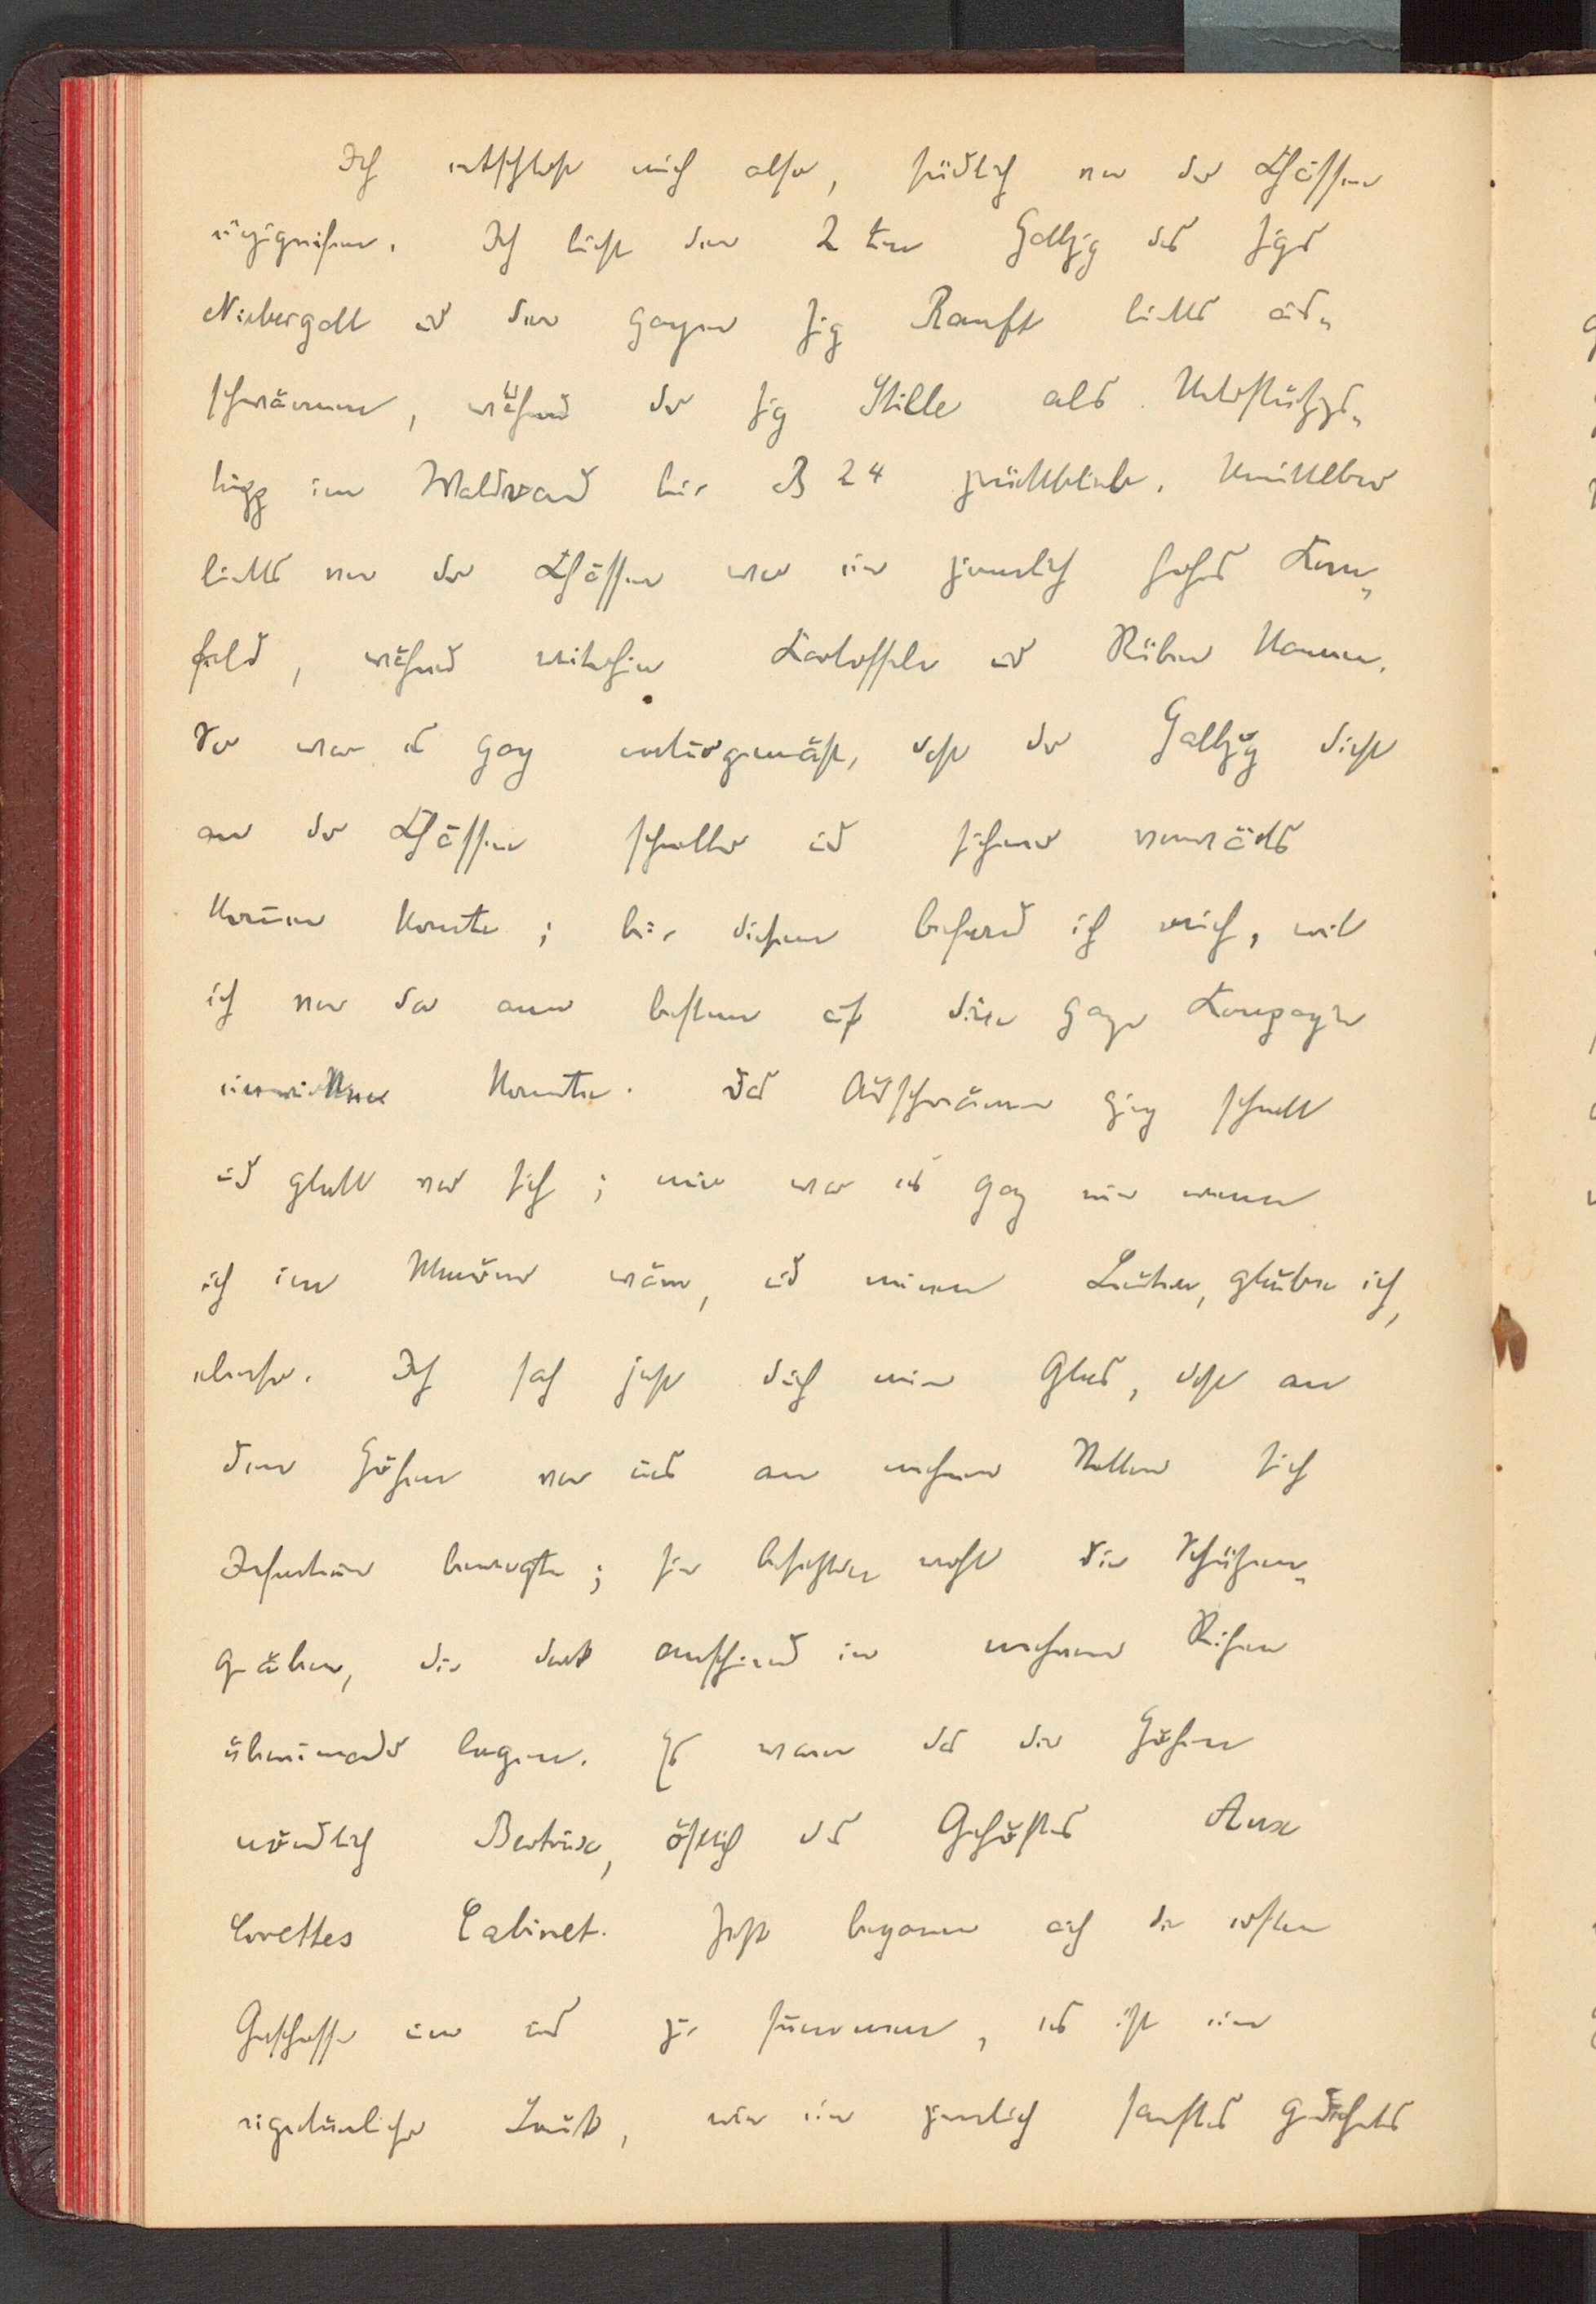 Ich entschloß mich also, südlich von der Chaussee
einzugreifen. Ich ließ den 2ten Halbzug des Zugs
Niebergall und den ganzen Zug Ranft links aus-
schwärmen, während der Zug Stille als Unterstützungs-
trupp im Waldrand bei B 24 zurückblieb. Unmittelbar
links von der Chaussee war ein ziemlich hohes Korn-
feld, während weiterhin Kartoffeln und Rüben kamen.
So war es ganz naturgemäß, daß der Halbzug dicht
an der Chaussee schneller und sicherer vorwärts
kommen konnte; bei diesem befand ich mich, weil
ich von da am besten auf die ganze Kompagnie
einwirken konnte. Das Ausschwärmen ging schnell
und glatt vor sich; mir war es ganz wie wenn
ich im Manöver wäre, und meinen Leuten, glaube ich,
ebenso. Ich sah jetzt durch mein Glas, daß an
den Höhen vor uns an mehreren Stellen sich
Infanterie bewegte; sie besetzten wohl die Schützen-
gräben, die dort anscheinend in mehreren Reihen
übereinander lagen. Es waren das die Höhen
nördlich Bertrix, östlich des Gehöftes Aux
Corettes Cabinet. Jetzt begannen auch die ersten
Geschosse um uns zu summen, es ist ein
eigentümlicher Laut, wie ein ziemlich sanftes